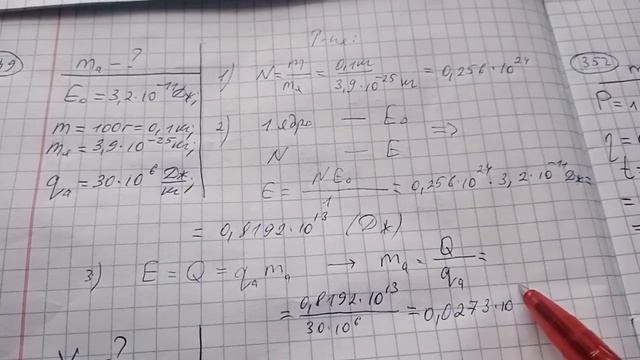 49
mₐ - ?
E₀ = 3,2·10⁻¹¹ Дж;
m = 100г = 0,1 кг;
mя = 3,9·10⁻²⁵ кг;
qₐ = 30·10⁶ Дж/кг;
Р-ние:
1) N = m/mя = 0,1кг/3,9·10⁻²⁵ кг = 0,256·10²⁴
2) 1 ядро — E₀
N — E =>
E = NE₀/1 = 0,256·10²⁴·3,2·10⁻¹¹ Дж =
= 0,8192·10¹³ (Дж)
3) E = Q = qₐmₐ → mₐ = Q/qₐ =
= 0,8192·10¹³/30·10⁶ = 0,0273·10
352
P = 1
q =
t =
=
=
- ?